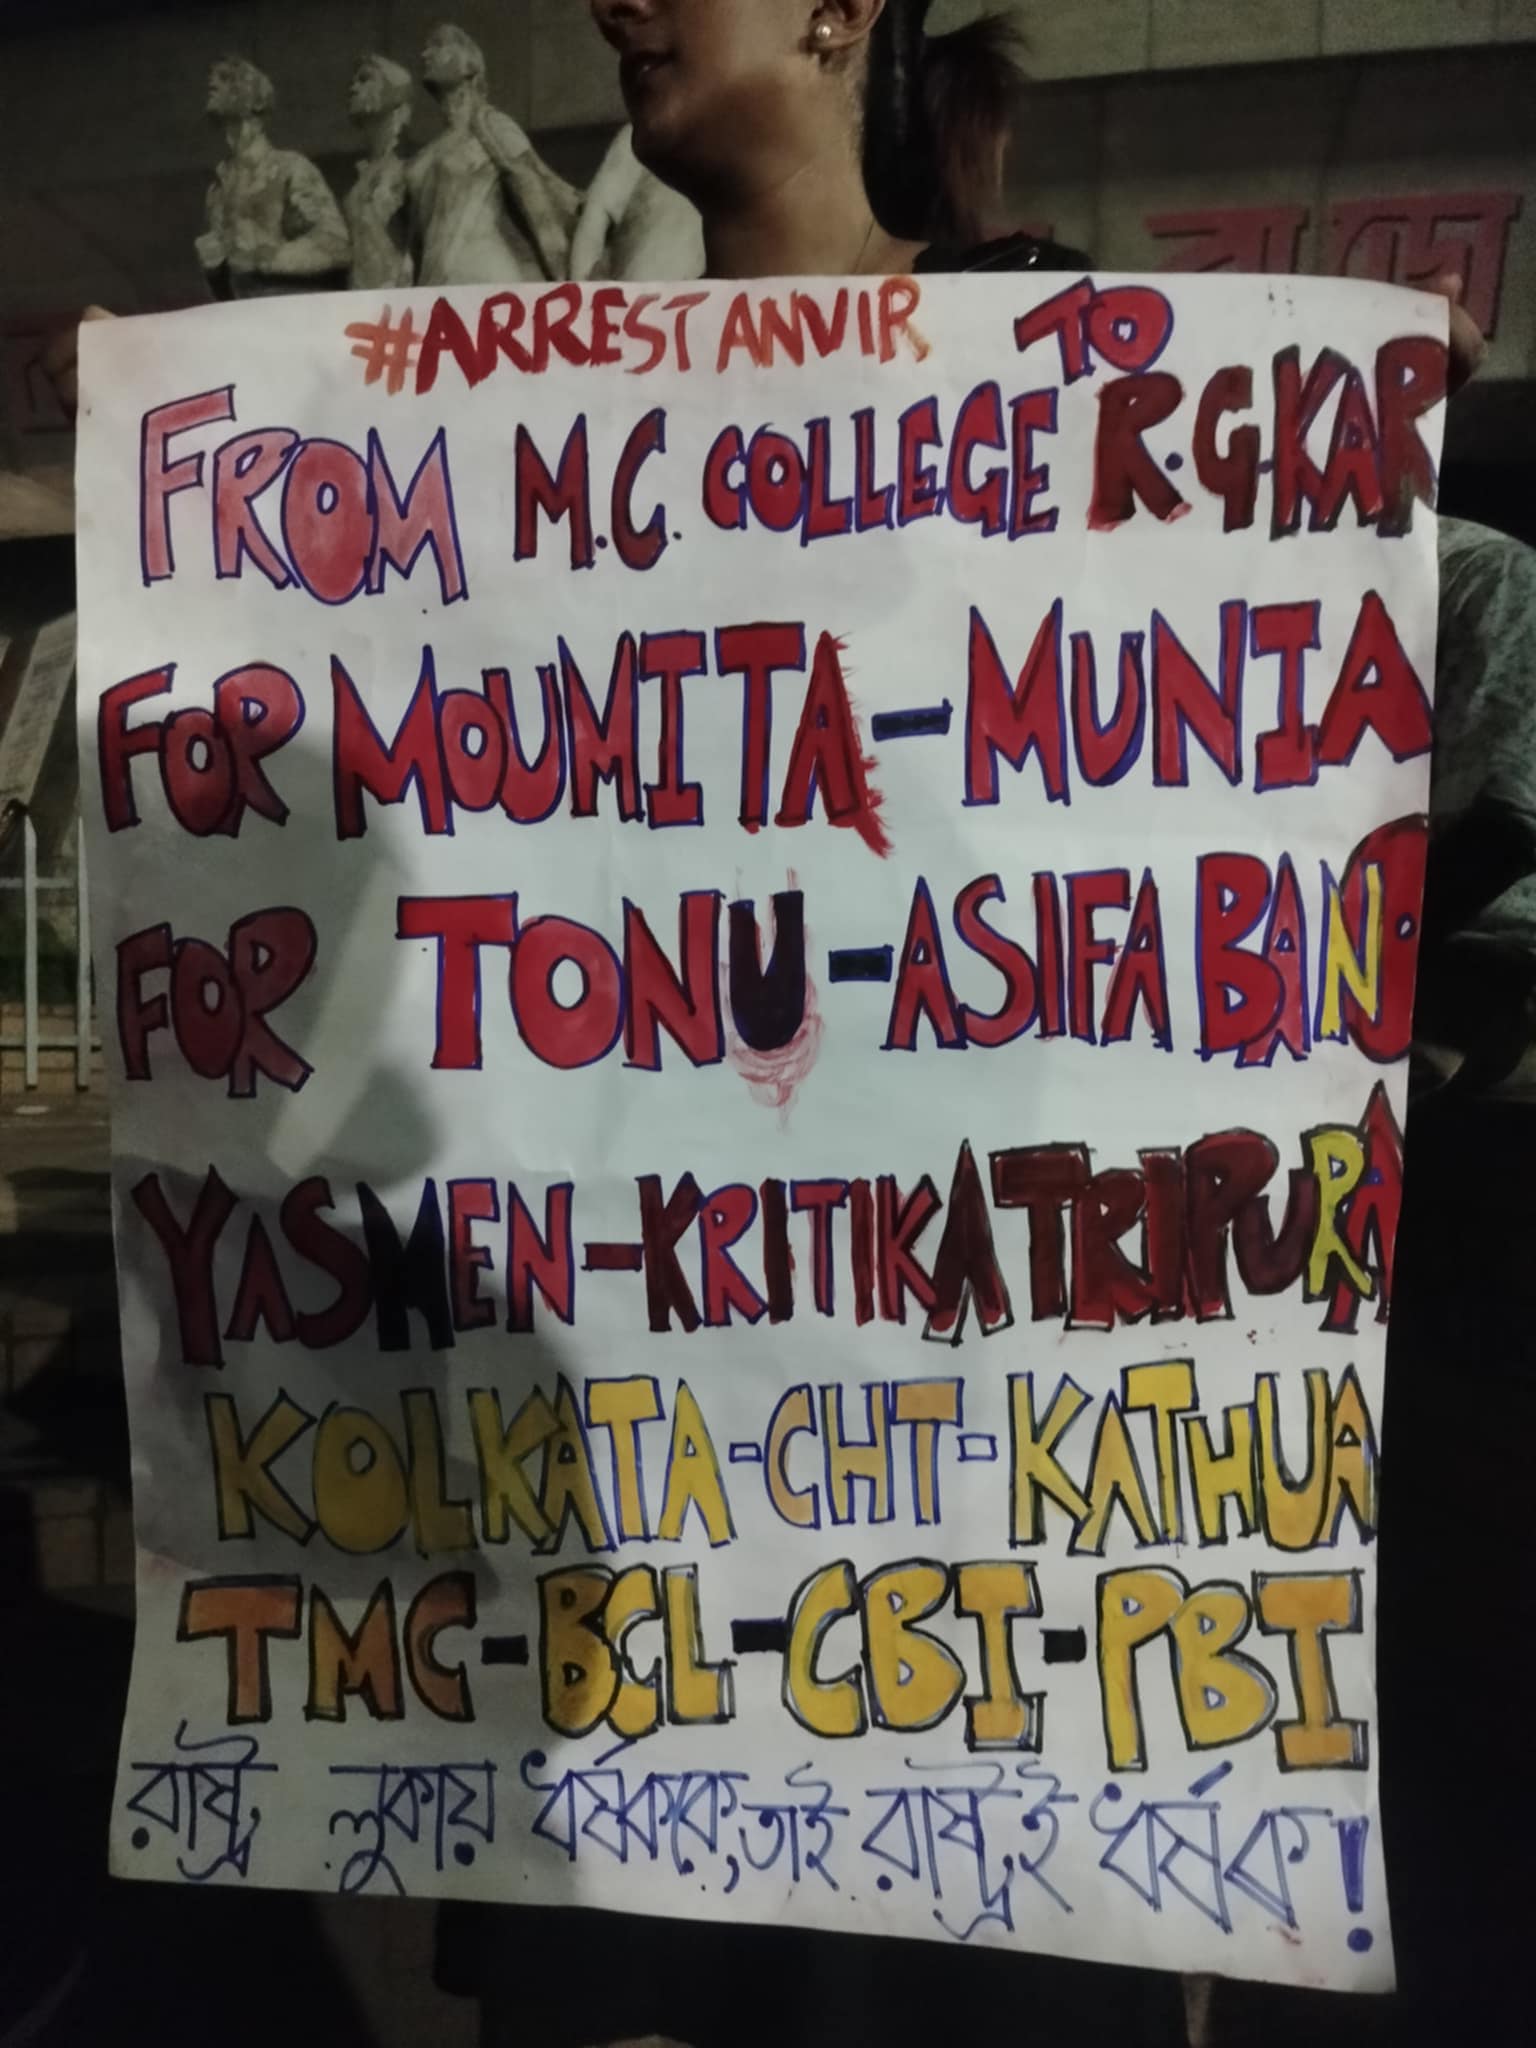 #ARREST ANVIR
FROM M.C. COLLEGE TO R.G.KAR
FOR MOUMITA-MUNIA
FOR TONU-ASIFA BANO
YASMEN-KRITIKA TRIPURA
KOLKATA-CHT-KATHUA
TMC-BCL-CBI-PBI
রাষ্ট্র লুকায় ধর্ষককে, তাই রাষ্ট্রই ধর্ষক!